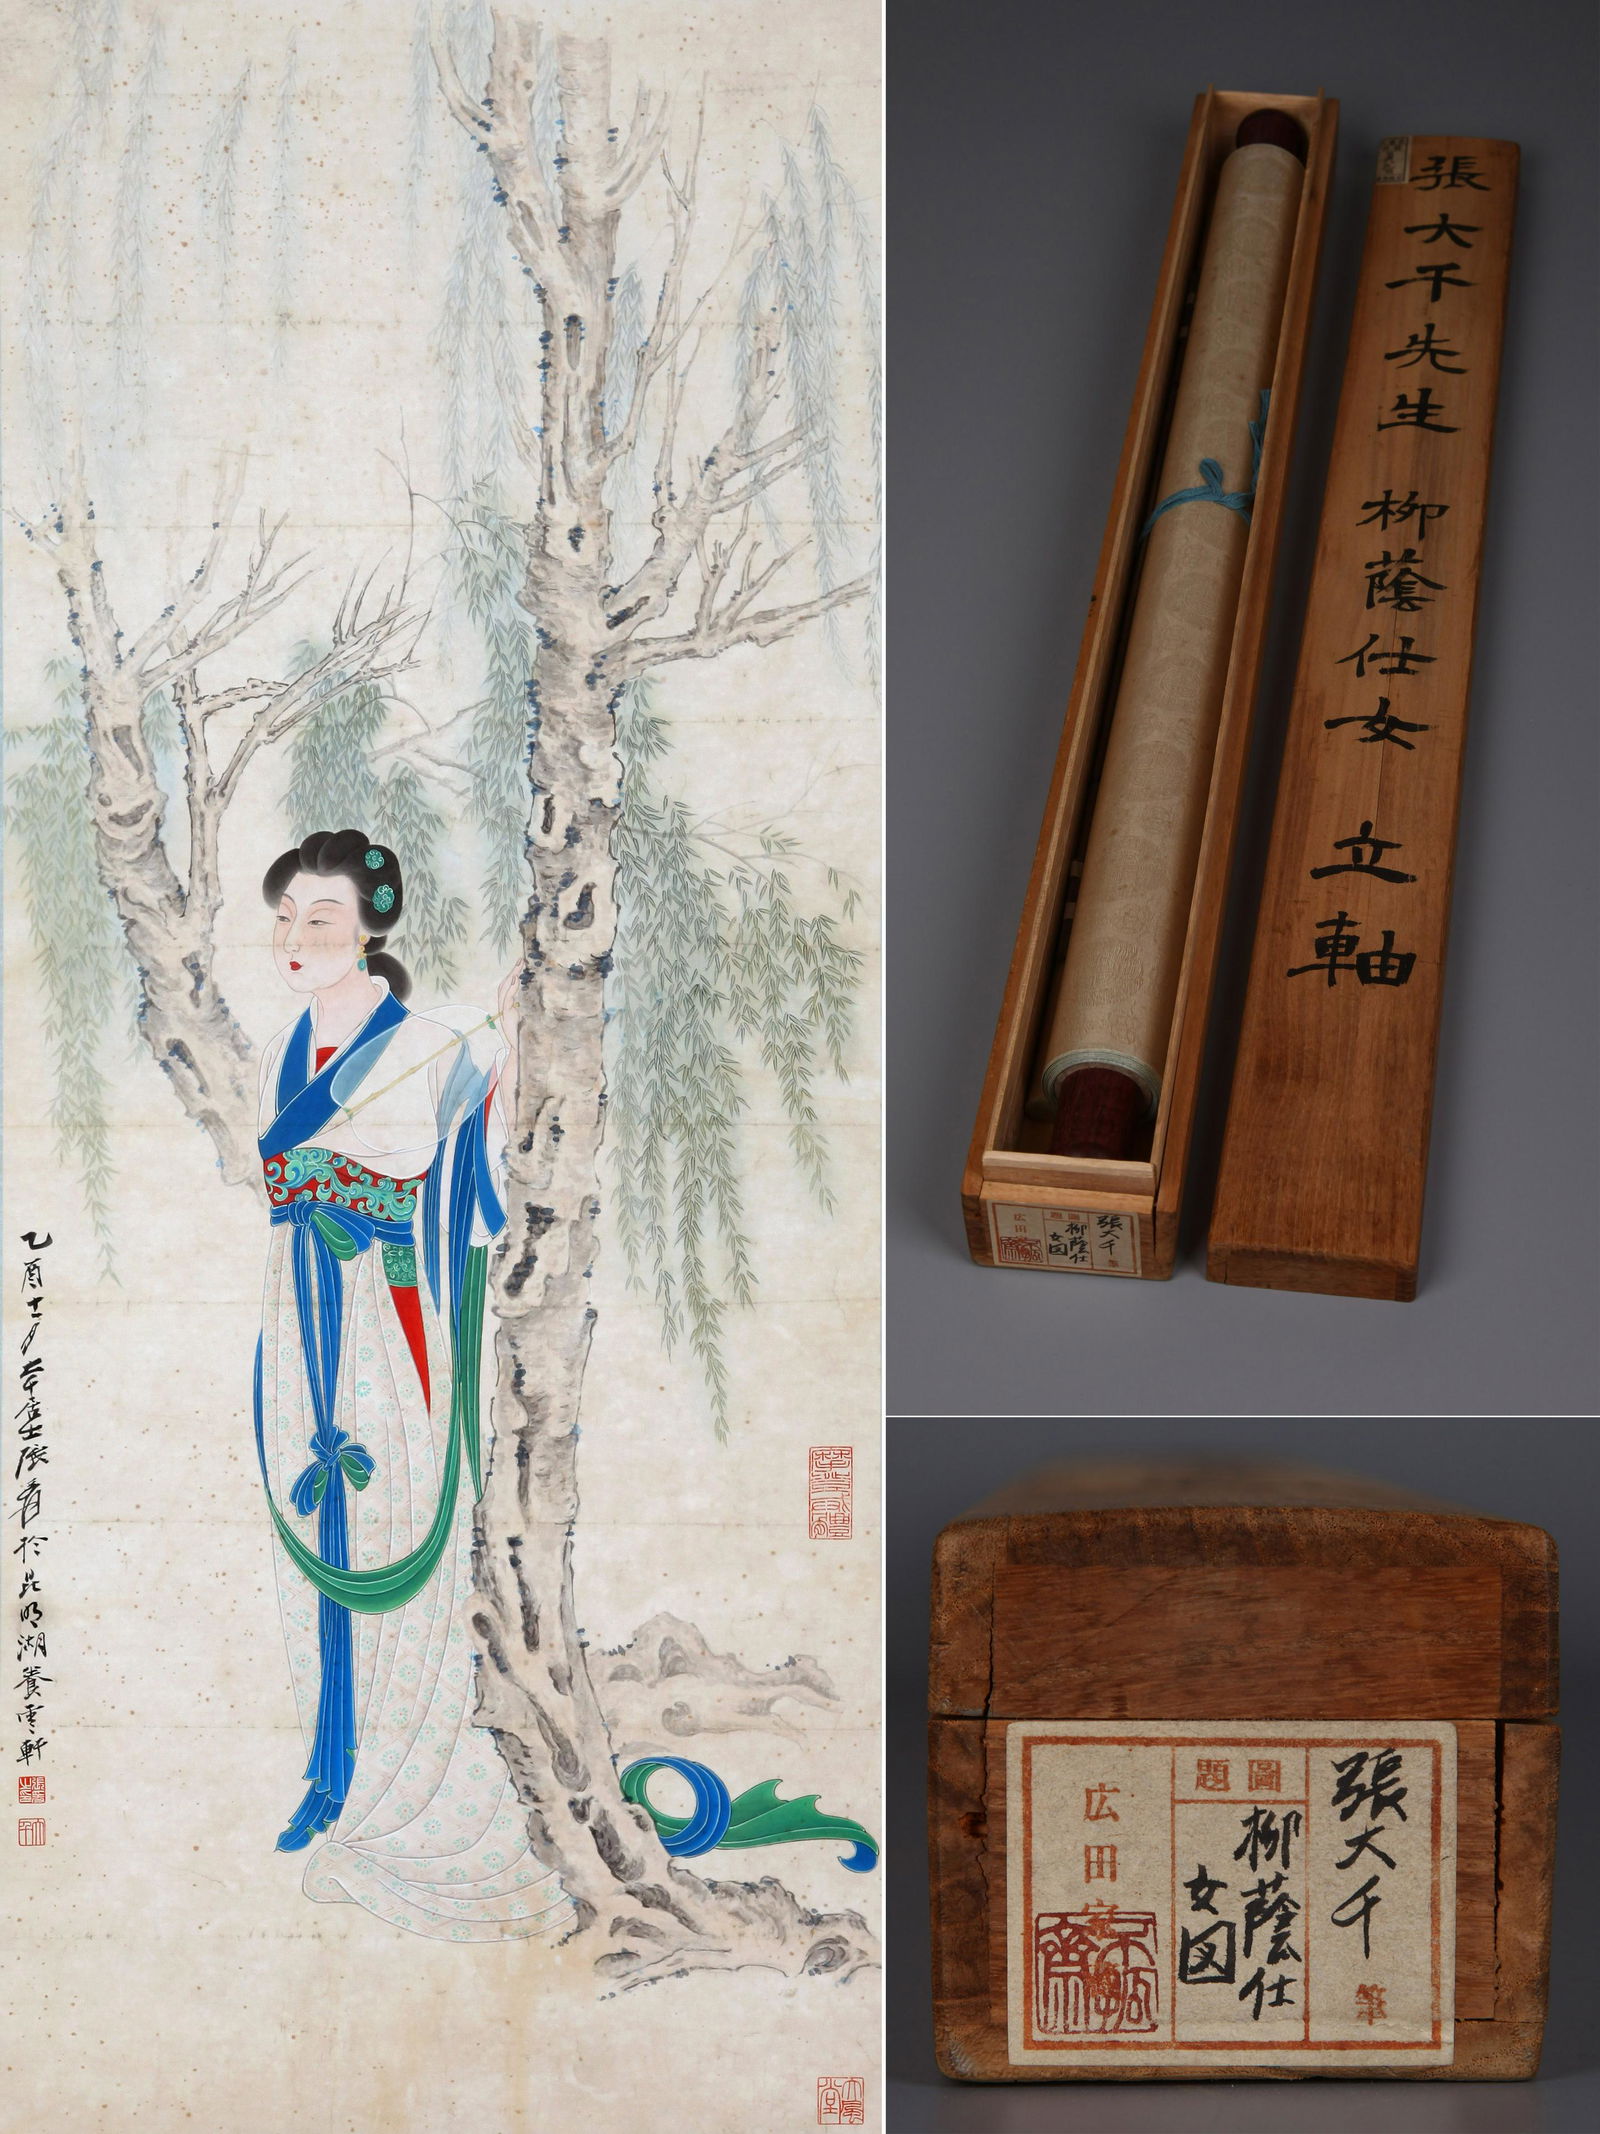 乙酉十一月大千居士張爰於昆明湖養雲軒
大風堂
張大千先生 柳蔭仕女 立軸
張大千 筆
圖題
柳蔭仕
女図
広田
張大千 筆
圖題
柳蔭仕
女図
広田